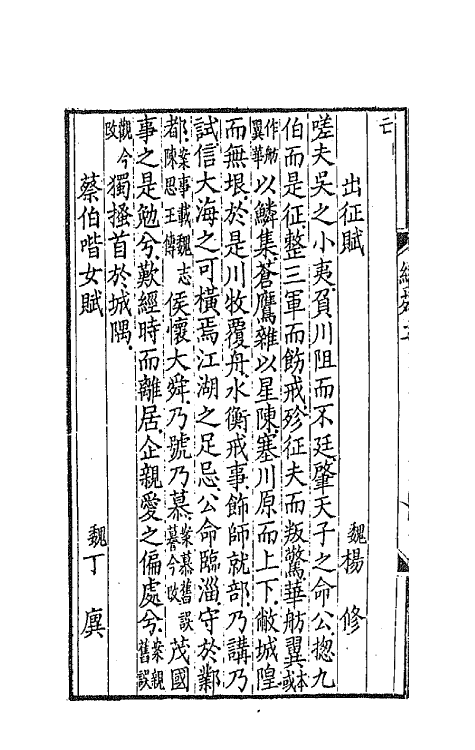 亡
出征賦　魏楊修
嗟夫吳之小夷負川阻而不廷肇天子之命公揔九
伯而是征整三軍而飭戒殄征夫而叛驚華舫翼本或
作舫翼華以鱗集蒼鷹雜以星陳塞川原而上下敝城隍
而無垠於是川牧覆舟水衡戒事飾師就部乃講乃
試信大海之可橫焉江湖之足忌公命臨淄守於鄴
都案事載魏志陳思王傳侯懷大舜乃號乃慕案慕舊誤暮今改茂國
事之是勉兮歎經時而離居企親愛之偏處兮案親舊誤
觀今改獨搔首於城隅
蔡伯喈女賦　魏丁廙